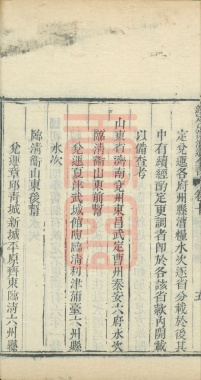 定兌運各府州縣漕糧水次逐省分載於後其
中有續經酌定更調者仍於各該省款內開載
以備查考
山東省濟南兗州東昌武定曹州泰安六府水次
臨清衞山東前幫
兌運夏津武城館陶臨清利津蒲臺六州縣
水次
臨清衞山東後幫
兌運章邱青城新城平原齊東臨清六州縣